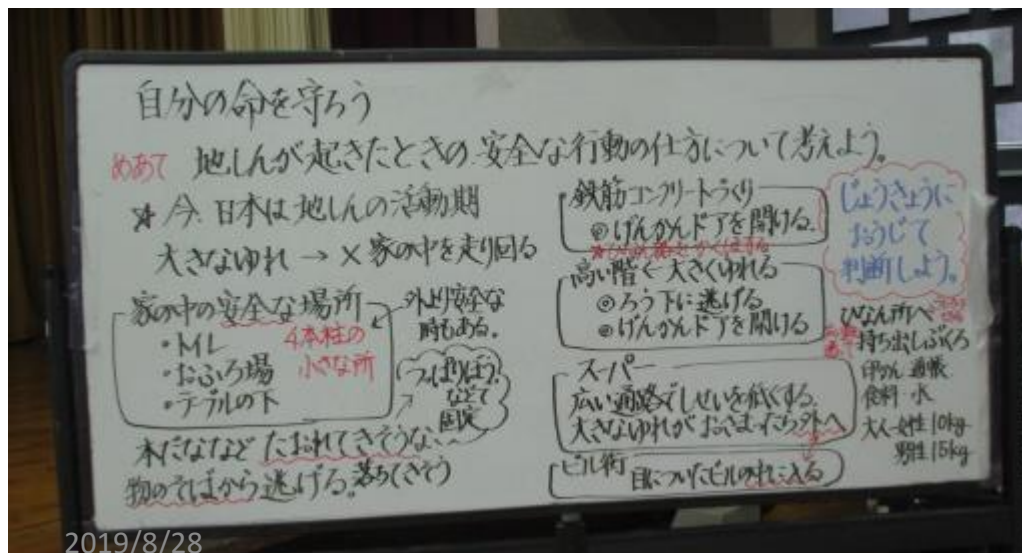 自分の命を守ろう
めあて 地しんが起きたときの安全な行動の仕方について考えよう。
☆今、日本は地しんの活動期
大きなゆれ → × 家の中を走り回る
家の中の安全な場所
・ML
・おふろ場
・テーブルの下
4本柱の
小さな所
外より安全な
時もある。
つっぱりぼう
などで
固定
本だななど たおれてきそうな
物のそばから逃げる。落ちてきそう
鉄筋コンクリートづくり
◎げんかんドアを開ける。
高い階 ← 大きくゆれる
◎ろう下に逃げる
◎げんかんドアを開ける
スーパー
広い通路でしせいを低くする。
大きなゆれがおさまったら外へ
ビル街
目についたビルの中に入る
じょうきょうに
おうじて
判断しよう。
ひなん所へ
持ち出しぶくろ
印かん 通帳
食料・水
大人-女性 10kg
男性 15kg
2019/8/28